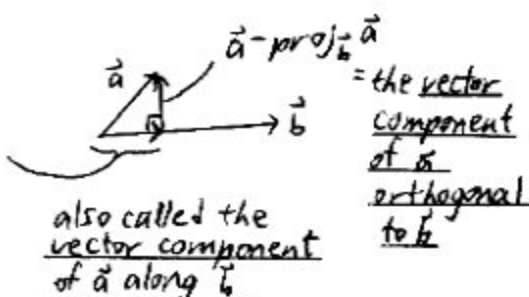 a⃗ - proj_b⃗ a⃗
a⃗
= the vector
component
of a⃗
orthogonal
to b⃗
b⃗
also called the
vector component
of a⃗ along b⃗